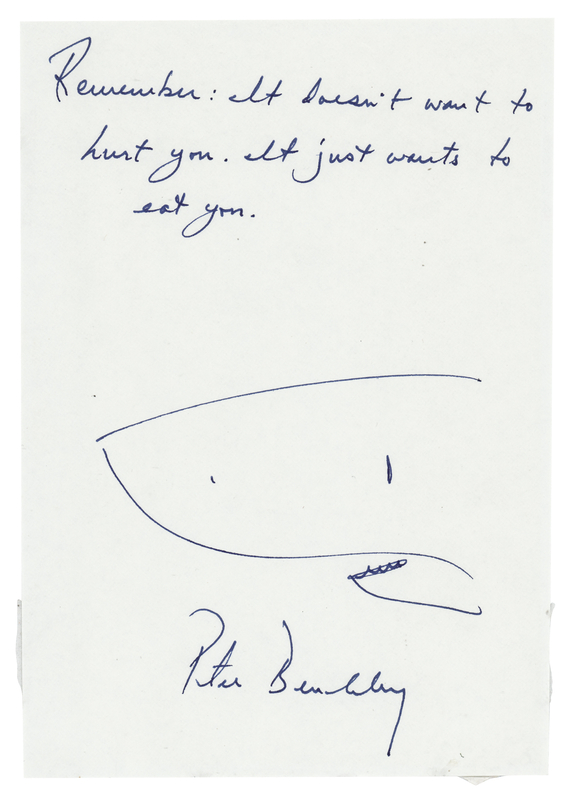 Remember: It doesn't want to
hurt you. It just wants to
eat you.
Peter Benchley